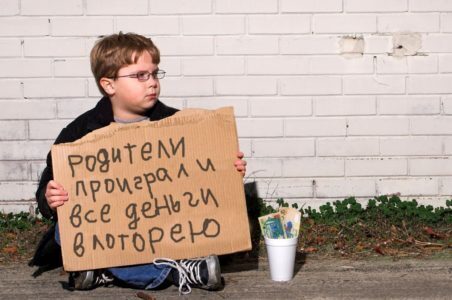 Родители
проиграли
все деньги
в лоторею